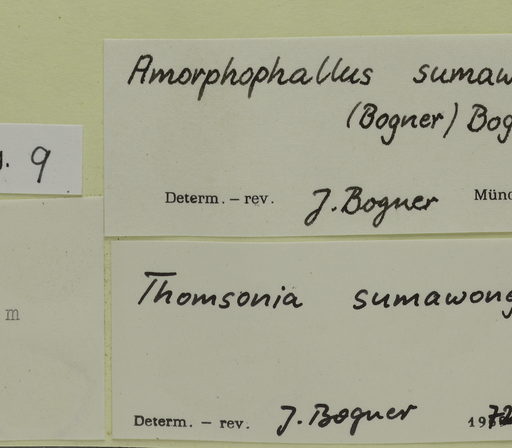 Amorphophallus sumaw
(Bogner) Bog
9
Determ. – rev. J. Bogner Münc
m
Thomsonia sumawong
Determ. – rev. J. Bogner 1972